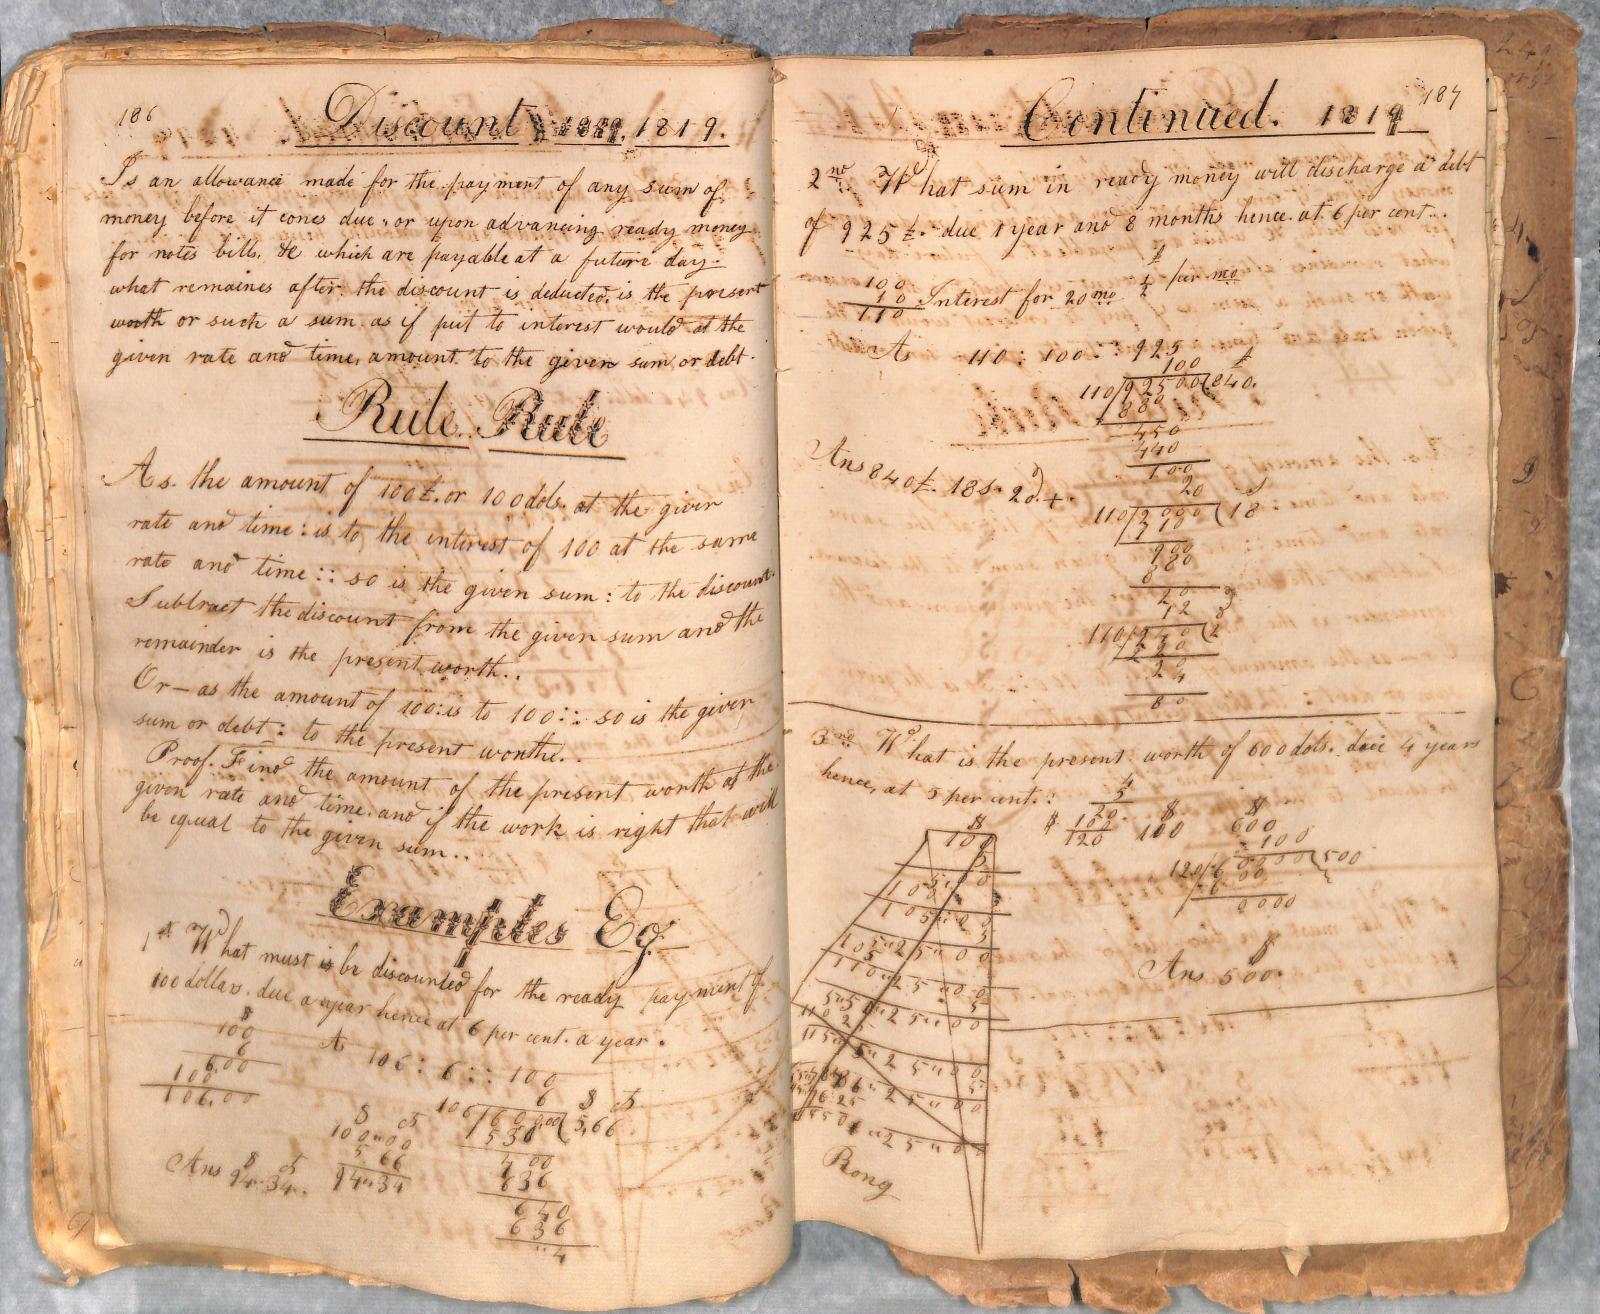 186
Discount 1819. 1819.
Is an allowance made for the payment of any sum of
money before it comes due, or upon advancing ready money
for notes bills, &c which are payable at a future day.
what remaines after the discount is deducted, is the present
worth or such a sum as if put to interest would at the
given rate and time, amount to the given sum or debt.
Rule. Rule
As. the amount of 100£. or 100 dols. at the given
rate and time: is to the interest of 100 at the same
rate and time:: so is the given sum: to the discount.
Subtract the discount from the given sum and the
remainder is the present worth..
Or— as the amount of 100: is to 100:: so is the given
sum or debt: to the present worthe..
Proof. Find the amount of the present worth at the
given rate and time. and if the work is right that will
be equal to the given sum..
Examples Eg
1st What must is be discounted for the ready payment of
100 dollars. due a year hence at 6 per cent. a year.
$
100
6
6.00
100
106.00
As 106 : 6 :: 100
6
106/600.00(5,66
530
700
636
640
636
4
100.00
5 66
94.34
Ans 94.34.
Continued. 1819
187
2nd What sum in ready money will discharge a debt
of 925£. due 1 year and 8 months hence. at 6 per cent..
100
10 Interest for 20 mo
110
½ per mo
As 110 : 100 :: 925
100
110/92500(840.
880
450
440
100
20
110/2000(18
110
900
880
20
12
110/240(2
220
Ans 840£. 18s. 2d.+
3rd What is the present worth of 600 dols. due 4 years
hence, at 5 per cent.:
4
5
20
100
120
$
100
$
600
100
120/60000(500
60
0000
Ans 500.
$
100
5
Rong